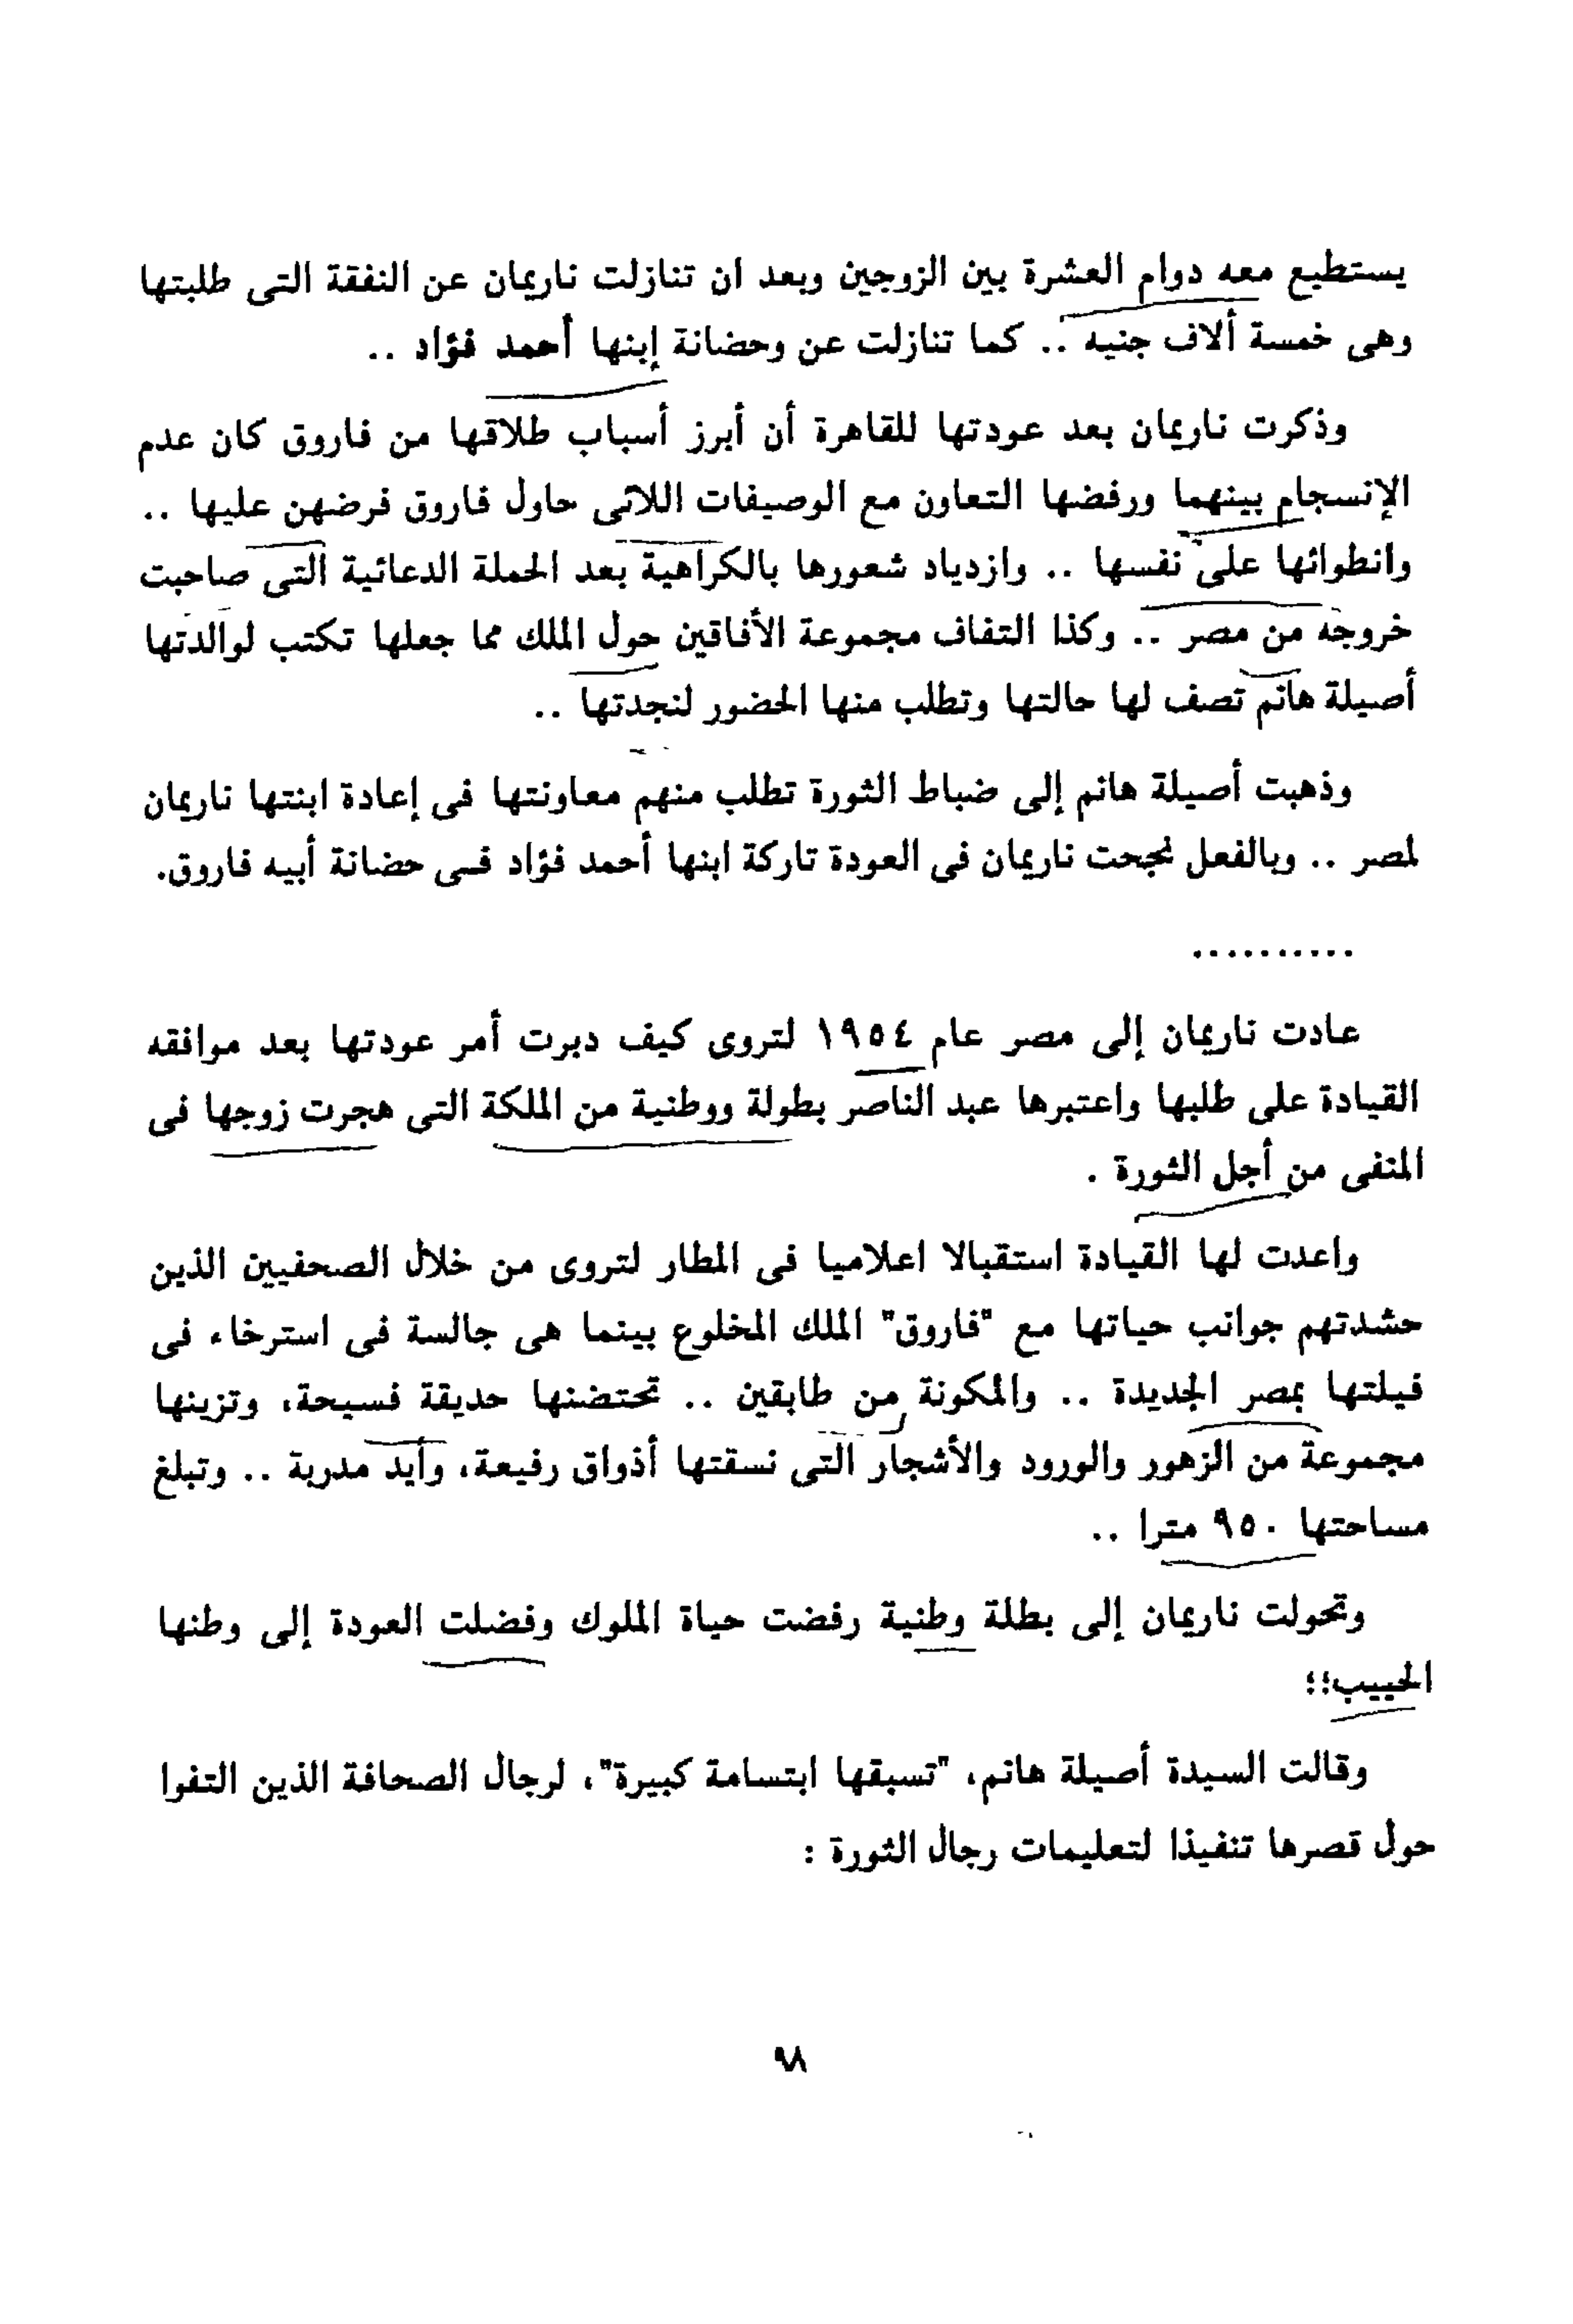 يستطيع معه دوام العشرة بين الزوجين وبعد ان تنازلت ناريمان عن النفقة التى طلبتها
وهى خمسة ألاف جنيه .. كما تنازلت عن وحضانة إبنها أحمد فؤاد ..
وذكرت ناريمان بعد عودتها للقاهرة أن أبرز أسباب طلاقها من فاروق كان عدم
الإنسجام بينهما ورفضها التعاون مع الوصيفات اللائى حاول فاروق فرضهن عليها ..
وانطوائها على نفسها .. وازدياد شعورها بالكراهية بعد الحملة الدعائية التى صاحبت
خروجه من مصر .. وكذا التفاف مجموعة الأفاقين حول الملك مما جعلها تكتب لوالدتها
أصيلة هانم تصف لها حالتها وتطلب منها الحضور لنجدتها ..
وذهبت أصيلة هانم إلى ضباط الثورة تطلب منهم معاونتها فى إعادة ابنتها ناريمان
لمصر .. وبالفعل نجحت ناريمان فى العودة تاركة ابنها أحمد فؤاد فى حضانة أبيه فاروق.
..........
عادت ناريمان إلى مصر عام ١٩٥٤ لتروى كيف دبرت أمر عودتها بعد موافقه
القيادة على طلبها واعتبرها عبد الناصر بطولة ووطنية من الملكة التى هجرت زوجها فى
المنفى من أجل الثورة .
واعدت لها القيادة استقبالا اعلاميا فى المطار لتروى من خلال الصحفيين الذين
حشدتهم جوانب حياتها مع "فاروق" الملك المخلوع بينما هى جالسة فى استرخاء فى
فيلتها بمصر الجديدة .. والمكونة من طابقين .. تحتضنها حديقة فسيحة، وتزينها
مجموعة من الزهور والورود والأشجار التى نسقتها أذواق رفيعة، وأيد مدربة .. وتبلغ
مساحتها ٩٥٠ مترا ..
وتحولت ناريمان إلى بطلة وطنية رفضت حياة الملوك وفضلت العودة إلى وطنها
الحبيب؛؛
وقالت السيدة أصيلة هانم، "تسبقها ابتسامة كبيرة"، لرجال الصحافة الذين التفوا
حول قصرها تنفيذا لتعليمات رجال الثورة :
٩٨